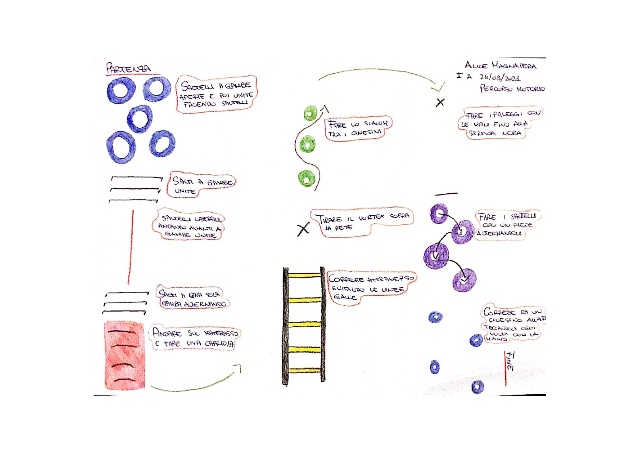 PARTENZA
SALTELLI A GAMBE
APERTE E POI UNITE
FACENDO SALTELLI
SALTI A GAMBE
UNITE
SALTELLI LATERALI
ANDANDO AVANTI A
GAMBE UNITE
SALTI A UNA SOLA
GAMBA ALTERNANDO
ANDARE SUL MATERASSO
E FARE UNA CAPRIOLA
FARE LO SLALOM
TRA I CINESINI
X
TIRARE IL VORTEX SOPRA
LA RETE
X
CORRERE ATTRAVERSO
EVITANDO LE LINEE
GIALLE
ALICE MAGNAPERA
I A 24/03/2021
PERCORSO MOTORIO
FARE I PALLEGGI CON
LE MANI FINO ALLA
NERA
FARE I SALTELLI
CON UN PIEDE
ALTERNANDOLI
CORRERE DA UN
CINESINO ALL'ALTRO
TOCCANDO OGNI
VOLTA CON LA
MANO
FINE